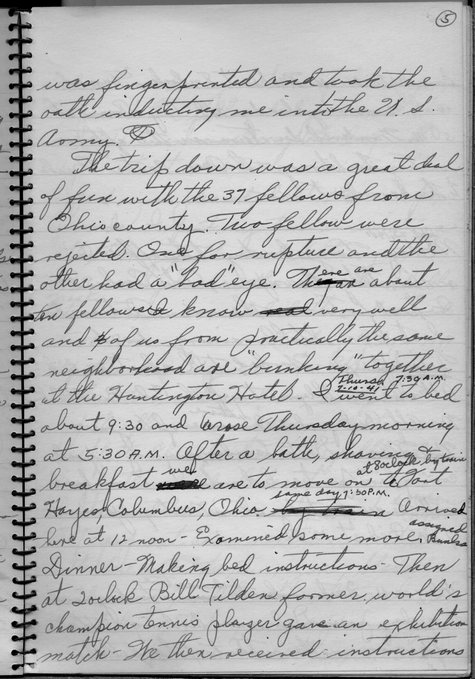 5
was fingerprinted and took the
oath inducting me into the U. S.
Army.
The trip down was a great deal
of fun with the 37 fellows from
Ohio county. Two fellow were
rejected. One for rupture and the
other had a "bad" eye. There are about
ten fellows I know very well
and 5 of us from practically the same
neighborhood are "bunking" together
Thursd. 7:30 A.M.
7-10-41
at the Huntington Hotel. I went to bed
about 9:30 and arose Thursday morning
at 5:30 A.M. After a bath, shaving &
at 8 oclock by train
breakfast we are to move on to Fort
same day 7:30 P.M.
Hayes, Columbus, Ohio. Arrived
here at 12 noon - Examined some more, assigned Bunks
Dinner - Making bed instructions - Then
at 2 oclock Bill Tilden former, world's
champion tennis player gave an exhibition
match - We then received instructions